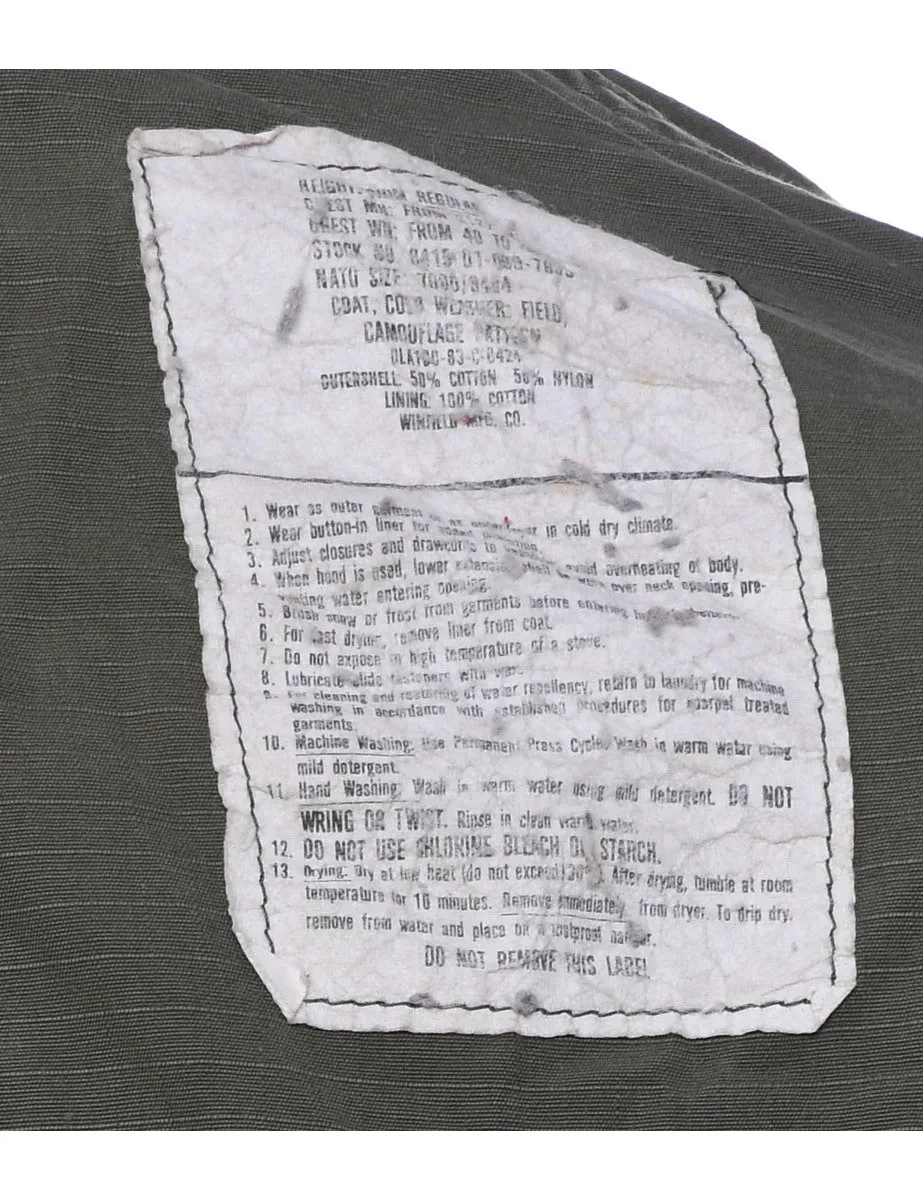 REGULAR
FROM
CHEST WN: FROM 40 TO
STOCK NO. 8415-01-099-
NATO SIZE:
COAT, COLD WEATHER: FIELD,
CAMOUFLAGE PATTERN
DLA100-83-C-0424
OUTERSHELL: 50% COTTON 50% NYLON
LINING: 100% COTTON
WINFIELD MFG. CO.
1. Wear as outer garment in cold dry climate.
2. Wear button-in liner for
3. Adjust closures and drawcords to avoid overheating of body.
4. When hood is used, lower over neck opening, pre-
venting water entering opening.
5. Brush snow or frost from garments before entering
6. For fast drying, remove liner from coat.
7. Do not expose to high temperature of a stove.
8. Lubricate slide fasteners with wax.
9. For cleaning and restoring of water repellency, return to laundry for machine
washing in accordance with established procedures for quarpel treated
garments.
10. Machine Washing: Use Permanent Press Cycle. Wash in warm water using
mild detergent.
11. Hand Washing: Wash in warm water using mild detergent. DO NOT
WRING OR TWIST. Rinse in clean warm water.
12. DO NOT USE CHLORINE BLEACH OR STARCH.
13. Drying: Dry at low heat (do not exceed 130° ). After drying, tumble at room
temperature for 10 minutes. Remove immediately from dryer. To drip dry,
remove from water and place on a rustproof hanger.
DO NOT REMOVE THIS LABEL